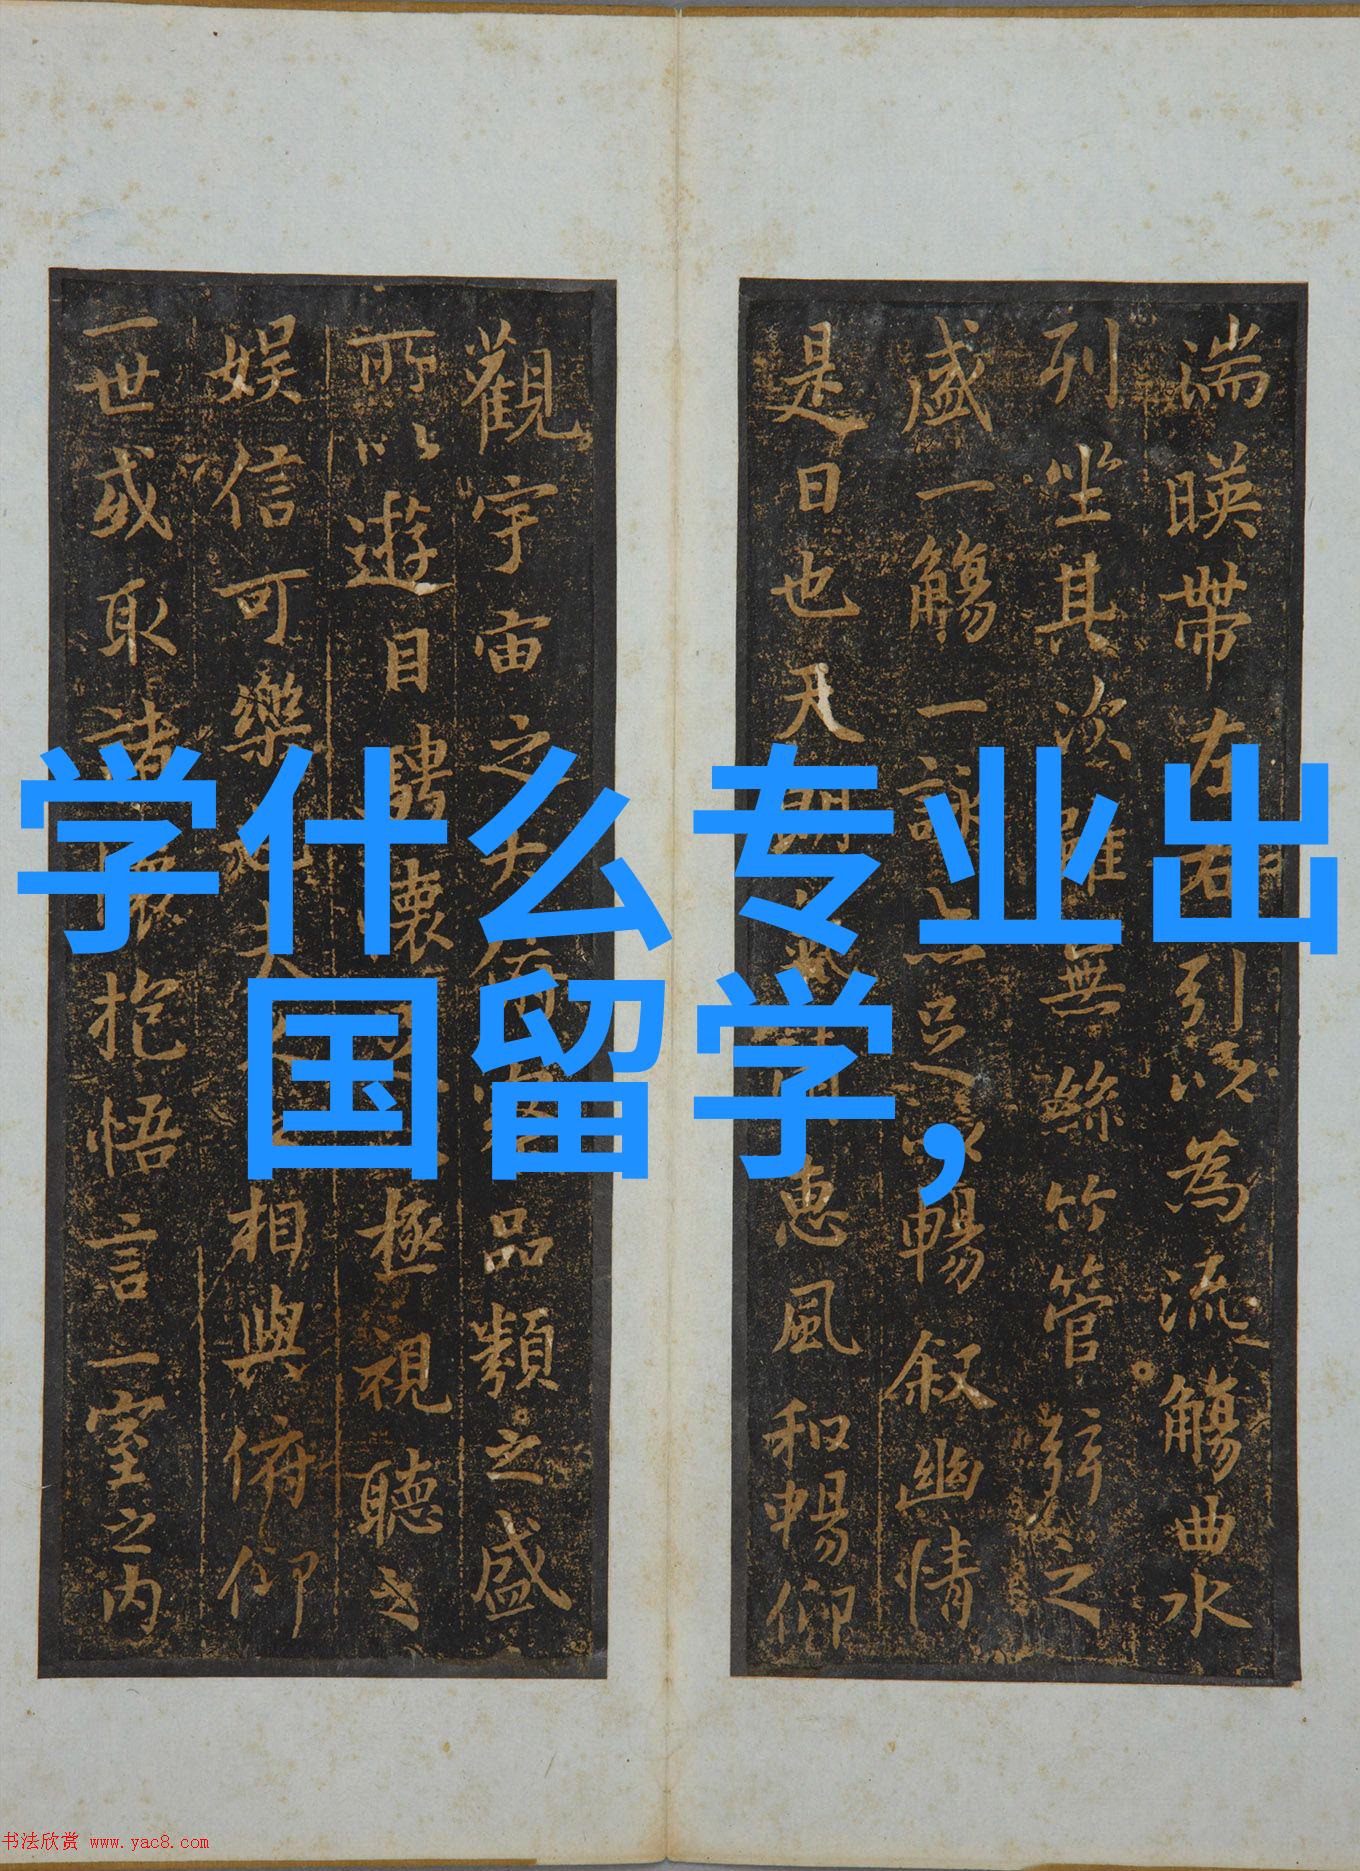 湍暎帶左右引以為流觴曲水
列坐其次雖無絲竹管弦之
盛一觴一詠亦足以暢叙幽情
是日也天朗氣清惠風和暢仰
觀宇宙之大俯察品類之盛
所以遊目騁懷足以極視聽之
娱信可樂也夫人之相與俯仰
一世或取諸懷抱悟言一室之内
学什么专业出
国留学,
书法欣赏 www.yac8.com